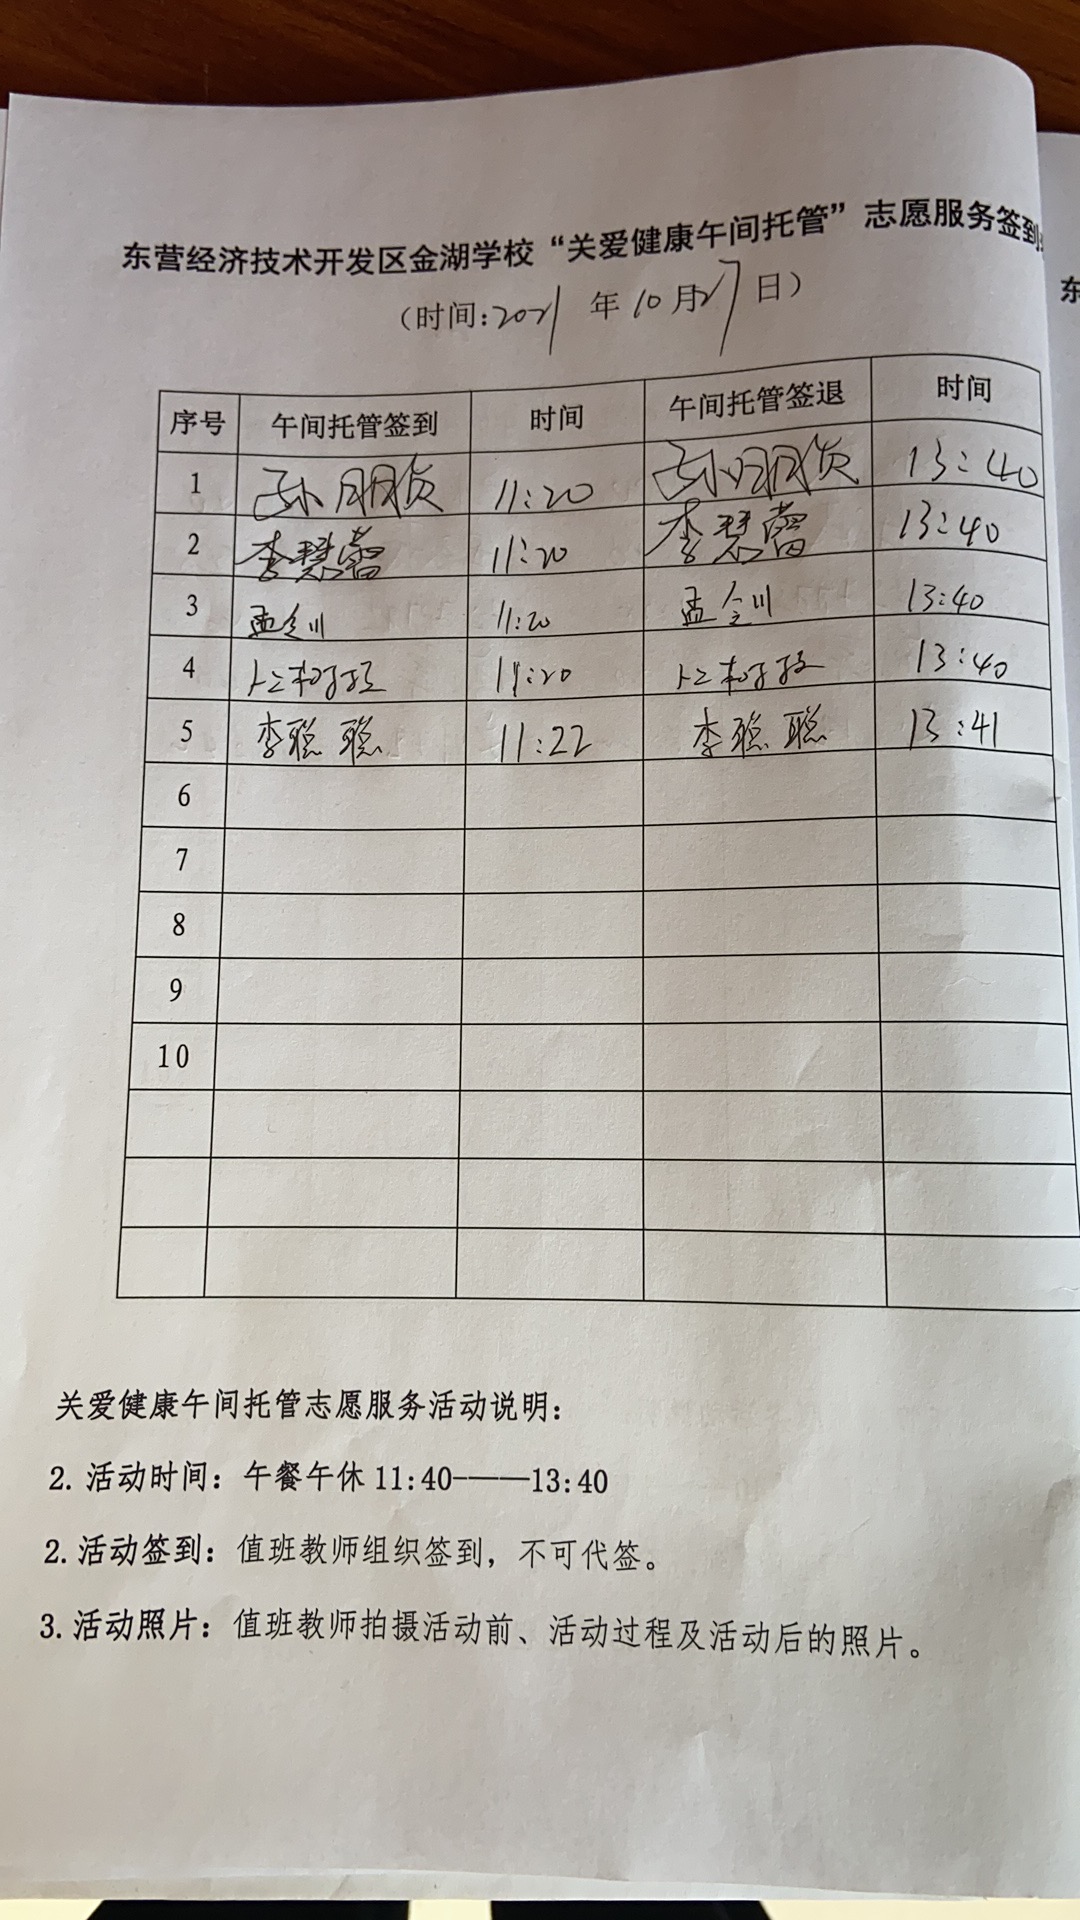 东营经济技术开发区金湖学校“关爱健康午间托管”志愿服务签到
(时间:2021年10月27日)
东
序号 午间托管签到 时间 午间托管签退 时间
1 孙朋贞 11:20 孙朋贞 13:40
2 李慧蕾 11:20 李慧蕾 13:40
3 孟 11:20 孟 13:40
4 11:20 13:40
5 李聪聪 11:22 李聪聪 13:41
6
7
8
9
10
关爱健康午间托管志愿服务活动说明:
2.活动时间:午餐午休11:40———13:40
2.活动签到:值班教师组织签到,不可代签。
3.活动照片:值班教师拍摄活动前、活动过程及活动后的照片。